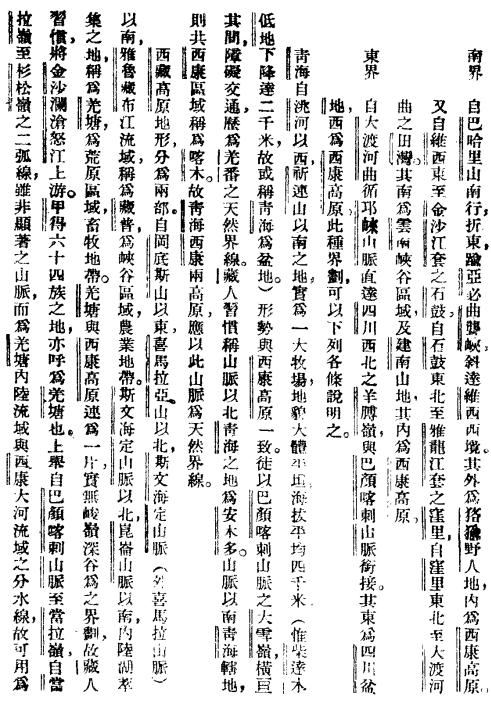 南界　自巴哈里山南行，折東踰亞必曲龔峽，斜達維西西境。其外爲狢㺄野人地，內爲西康高原。
又自維西東至金沙江套之石鼓，自石鼓東北至雅龍江套之窪里，自窪里東北至大渡河
曲之田灣。其南爲雲南峽谷區域，及建南山地，其內爲西康高原。
東界　自大渡河曲循邛崍山脈直達四川西北之羊膊嶺，與巴顏喀剌山脈銜接。其東爲四川盆
地，西爲西康高原。此種界劃，可以下列各條說明之。
青海自洮河以西，祈連山以南之地，實爲一大牧場，地貌大體平坦，海拔平均四千米（惟柴達木
低地下降達二千米，故或稱青海爲盆地。）形勢與西康高原一致。徒以巴顏喀剌山脈之大雪嶺橫亘
其間，障礙交通，歷爲羌番之天然界線。藏人習慣稱山脈以北青海之地爲安木多，山脈以南青海轄地，
則共西康區域稱爲喀木。故青海西康兩高原，應以此山脈爲天然界線。
西藏高原地形，分爲兩部，自岡底斯山以東，喜馬拉亞山以北，斯文海定山脈（外喜馬拉山脈）
以南，雅魯藏布江流域，稱爲藏，曾爲峽谷區域，農業地帶。斯文海定山脈以北，崑崙山脈以南，內陸湖萃
集之地，稱爲羌塘，爲荒原區域，畜牧地帶。羌塘與西康高原連爲一片，實無峻嶺深谷爲之界劃，故藏人
習慣，將金沙瀾滄怒江上游，甲得六十四族之地，亦呼爲羌塘也。上舉自巴顏喀剌山脈至當拉嶺，自當
拉嶺至杉松嶺之二孤線，雖非顯著之山脈，而爲羌塘內陸流域與西康大河流域之分水線，故可用爲